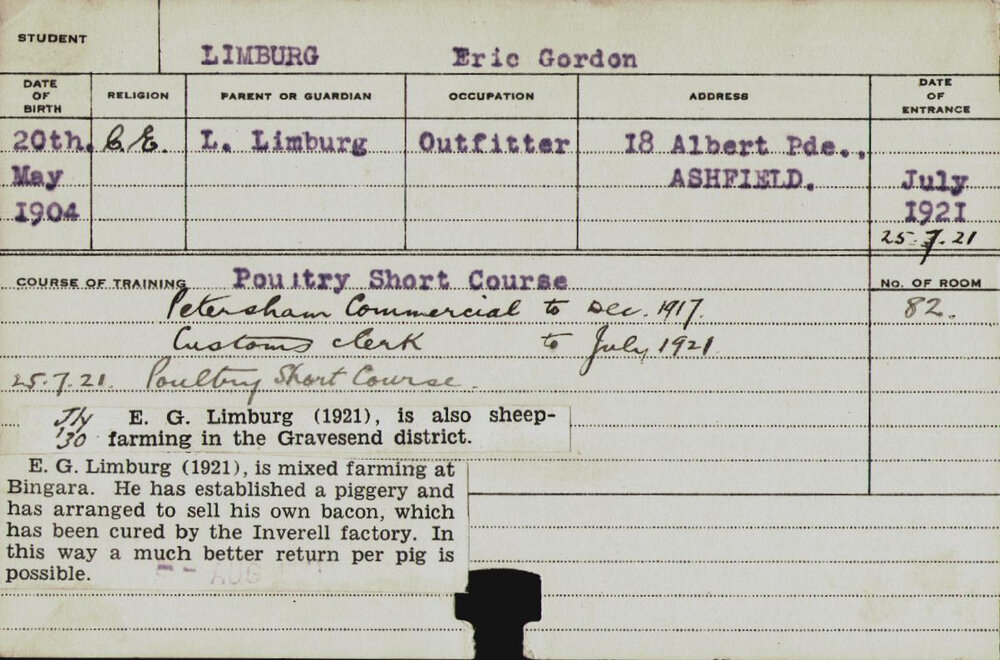 STUDENT
LIMBURG Eric Gordon
DATE OF BIRTH RELIGION PARENT OR GUARDIAN OCCUPATION ADDRESS DATE OF ENTRANCE
20th. C.E. L. Limburg Outfitter 18 Albert Pde.,
May ASHFIELD. July
1904 1921
25.7.21
COURSE OF TRAINING Poultry Short Course No. OF ROOM
Petersham Commercial to Dec. 1917. 82.
Customs clerk to July 1921.
25.7.21. Poultry Short Course.
Jly E. G. Limburg (1921), is also sheep-
'30 farming in the Gravesend district.
E. G. Limburg (1921), is mixed farming at
Bingara. He has established a piggery and
has arranged to sell his own bacon, which
has been cured by the Inverell factory. In
this way a much better return per pig is
possible.
AUG